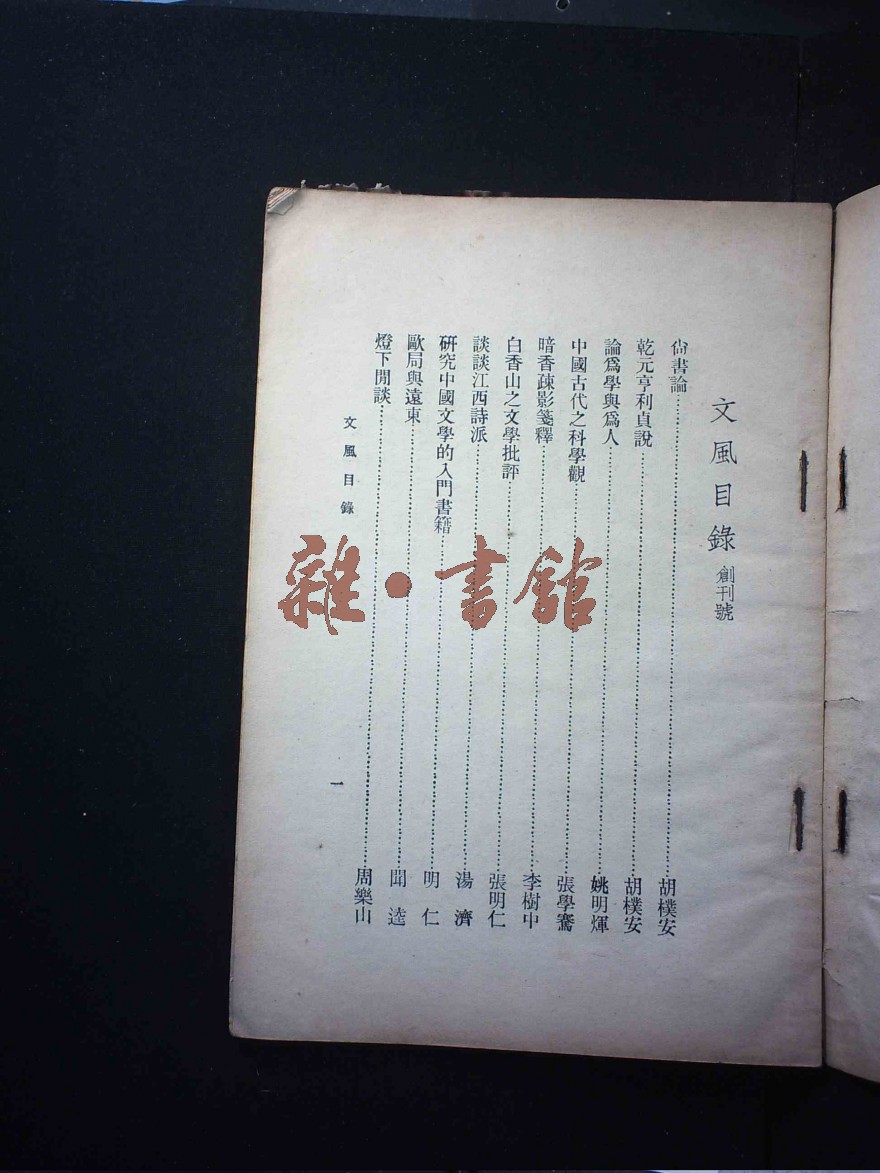 文風目錄 創刊號
尙書論……胡樸安
乾元亨利貞說……胡樸安
論爲學與爲人……姚明煇
中國古代之科學觀……張學騫
暗香疎影箋釋……李樹中
白香山之文學批評……張明仁
談談江西詩派……湯濟
研究中國文學的入門書籍……明仁
歐局與遠東……聞逵
燈下閒談……周樂山
文風目錄
一
雜·書館